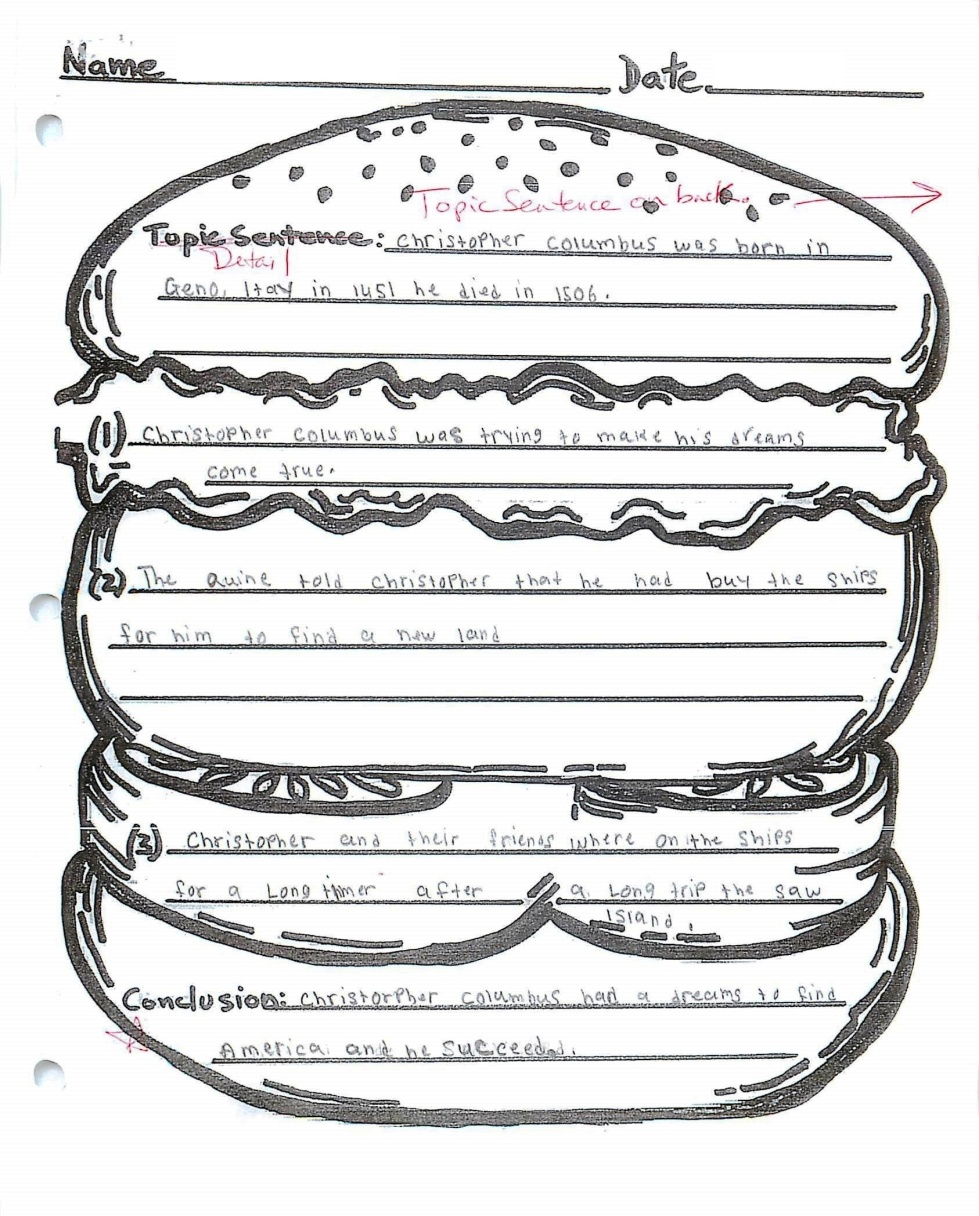 Name Date
Topic Sentence on back.
Topic Sentence: Christopher columbus was born in
Detail
Geno, Itay in 1451 he died in 1506.
(1) Christopher columbus was trying to make his dreams
come true.
(2) The quine told christopher that he had buy the ships
for him to find a new land
(3) Christopher and their friends where on the ships
for a Long timer after a Long trip the saw
island.
Conclusion: Christorpher columbus had a dreams to find
America and he succeeded.